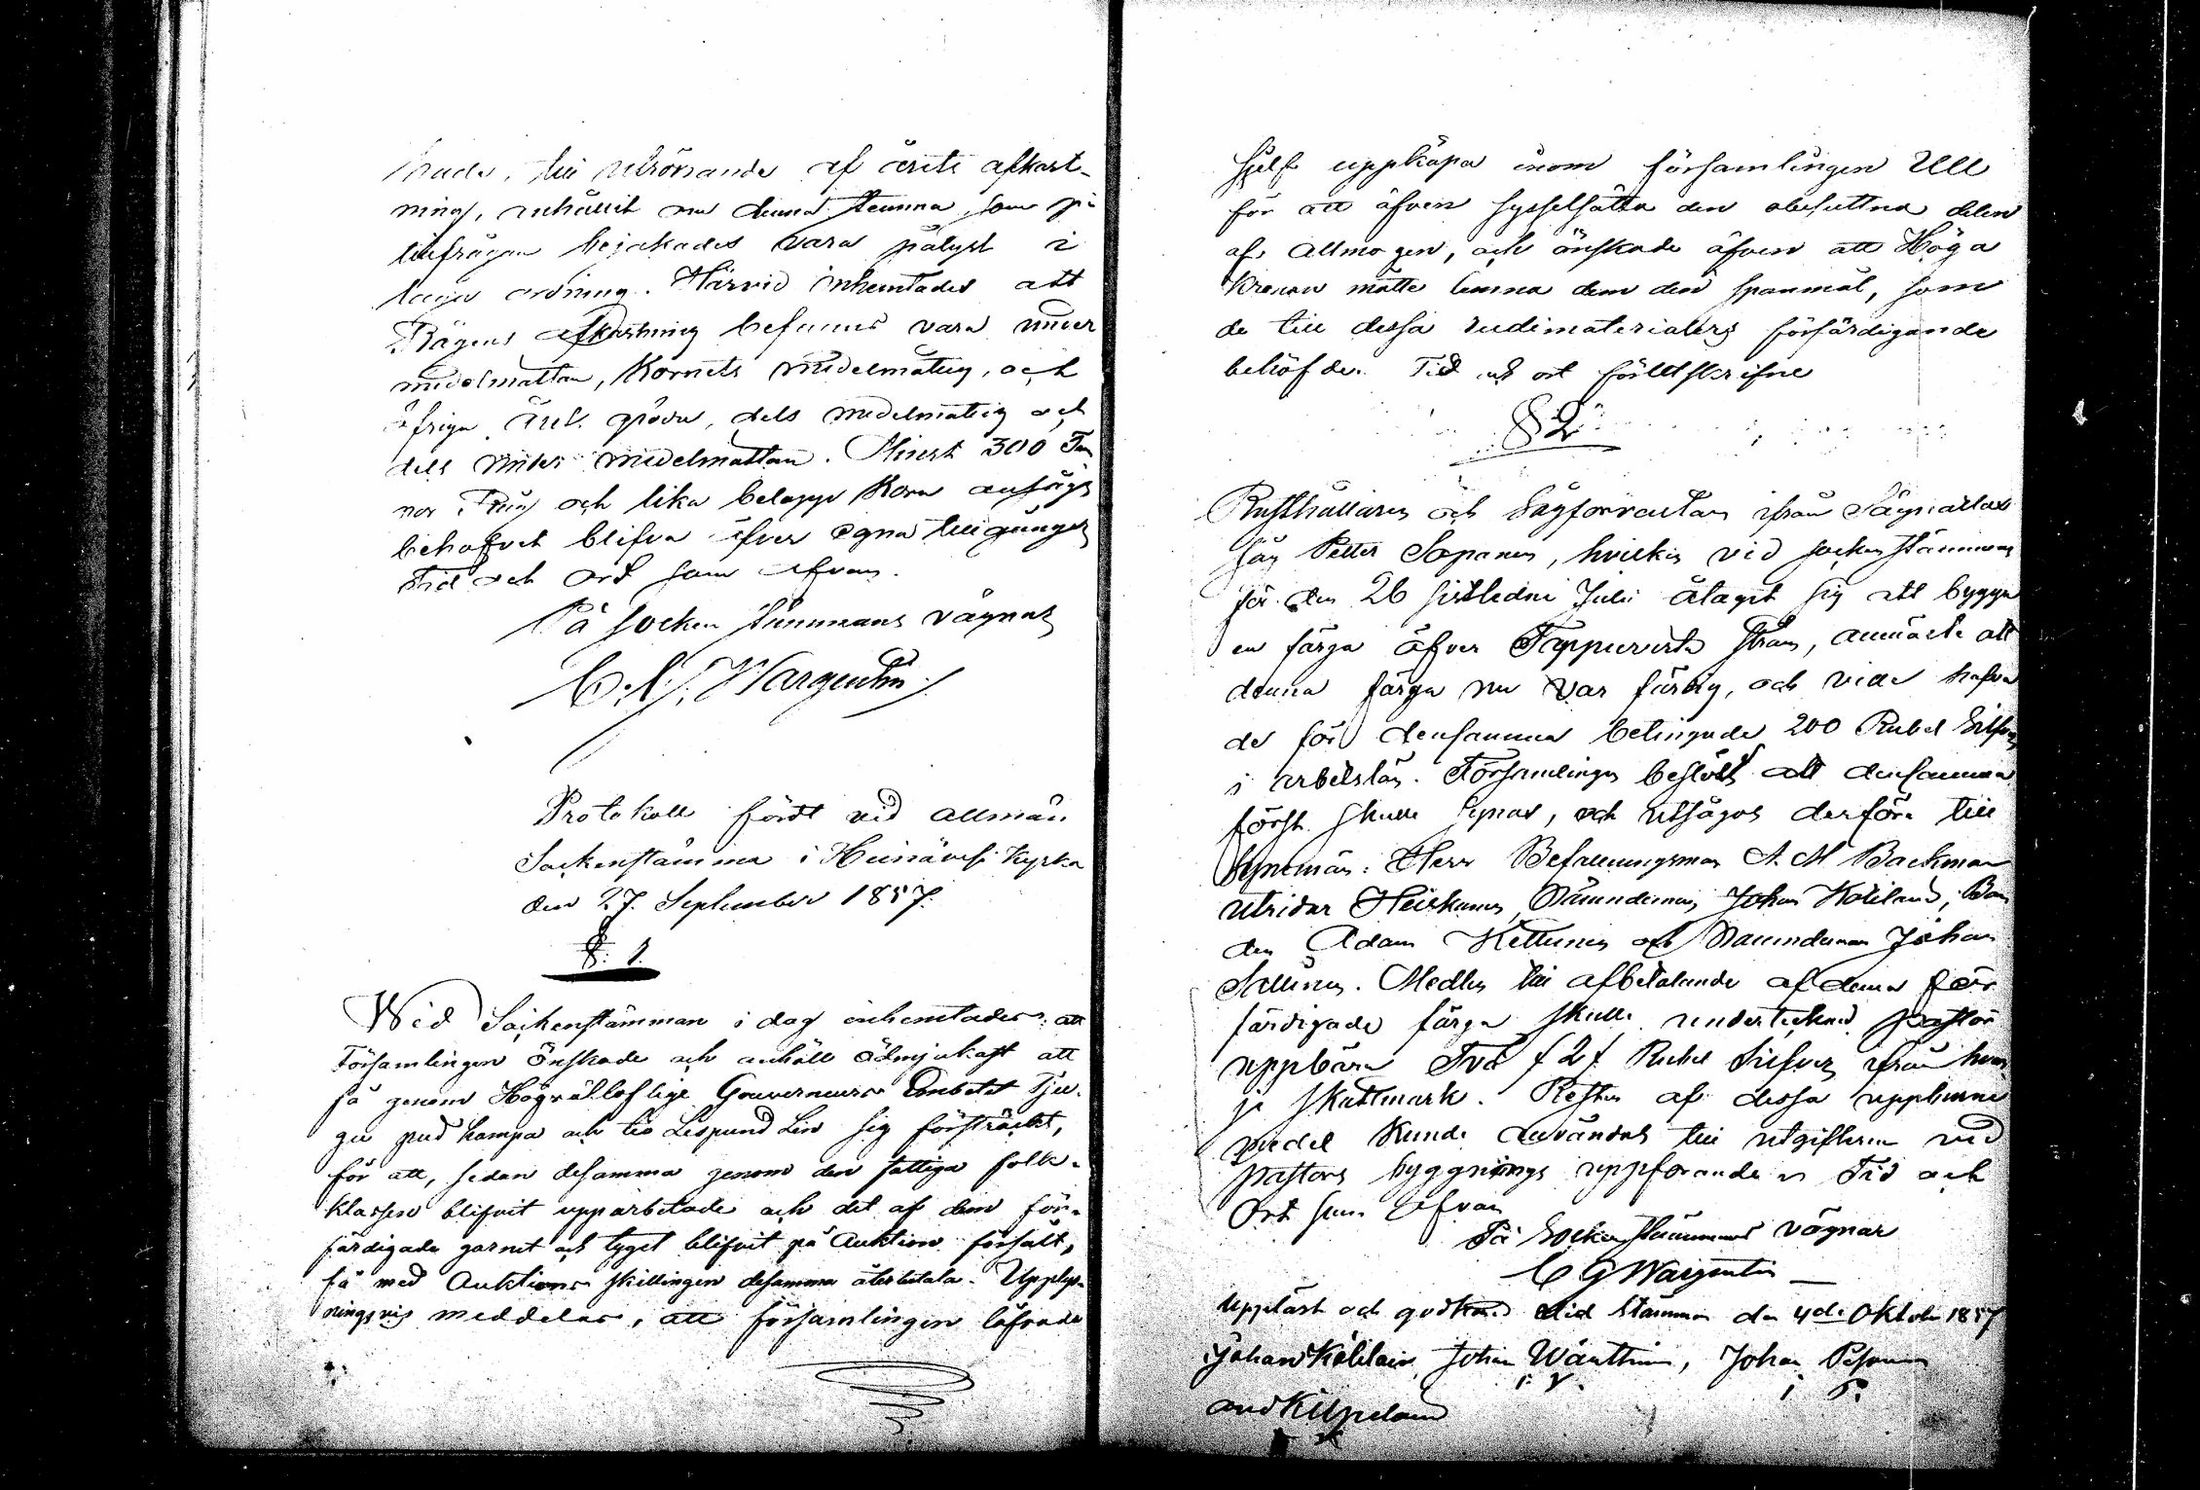 till utrönande af årets afkast-
ning, enhälligt nu denna stemma som på
tillfrågan bejakades vara pålyst i
laga ordning. Härvid inhemtades att
Rågens afkastning befunnits vara under
medelmåttan, Kornets medelmåttig, och
öfriga gröda, dels medelmåttig och
dels under medelmåttan. Minst 300 Tun
nor Råg och lika belopp Korn
behofvet blifva öfver egna tillgångar
Tid och Ort som ofvan.
På Socken stämmans vägnar
C. G. Wargentin
Protokoll fördt vid allmän
Sockenstämma i Heinävesi Kyrka
den 27. September 1857.
§. 1.
Wid Sockenstämman i dag inhemtades: att
Församlingen önskade och anhöll ödmjukast att
få genom Högvällofliga Gouverneurs Embetet Tju-
gu pud hampa och tio Lispund Lin sig försträckt,
för att, sedan desamma genom den fattiga folk-
klassen blifvit upparbetade och det af dem för-
färdigade garnet och tyget blifvit på Auktion försålt,
få med Auktions skillingen desamma återbetala. Upplys-
ningsvis meddelas, att församlingen låfvade
sjelf uppköpa inom församlingen Ull
för att äfven sysselsätta den obesuttna delen
af Allmogen, och önskade äfven att Höga
Kronan måtte lemna dem den spanmål, som
de till dessa rudimaterialers förfärdigande
behöfde. Tid och ort förutskrifne
§ 2
Rusthållaren och Sågförvaltaren ifrån
såg Petter Sopanen, hvilken vid sockenstämman
för den 26 sistledne Julii åtagit sig att bygga
en färja öfver Tappuvirta ström, anmälte att
denna färja nu var färdig, och ville hafva
de för densamma betingade 200 Rubel Silfver
i arbetslön. Församlingen beslöt att densamma
först skulle synas, och utsågos derföre till
Synemän: Herr Befallningsman A. M Backman
Utridar Heiskanen, Nämndeman Johan Kölilain, Bon
den Adam Kettunen och Nämndeman Johan
Medlen till afbetalande af denna för
färdigade färja skulle undertecknad pastor
uppbära Två /2/ Rubel Silfver ifrån hvar
je skattmark. Resten af dessa uppburne
medel kunde användas till utgifterne vid
pastors byggnings uppförande. Tid och
Ort som ofvan
På Sockenstämmans vägnar
C G Wargentin
Uppläst och godkänd vid Stämman den 4de Oktober 1857
Johan Kölilain, Johan Wänttinen, Johan Pesonen
And Kilpeläin